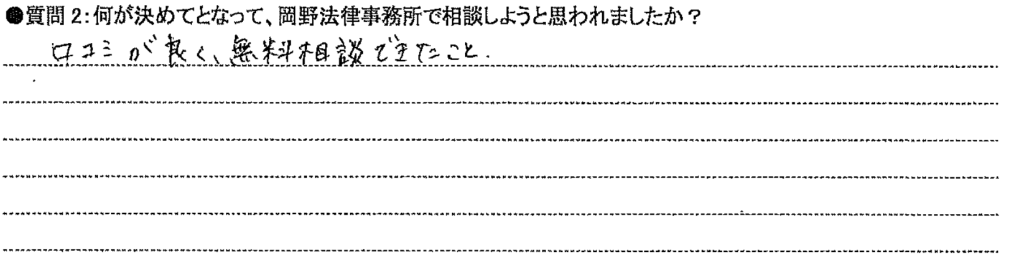 ●質問2:何が決めてとなって、岡野法律事務所で相談しようと思われましたか？
口コミが良く、無料相談できたこと.